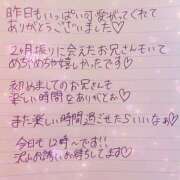 昨日もいっぱい可愛がってくれて
ありがとうございました♡
2ヶ月振りに会えたお兄さんもいて
めちゃめちゃ嬉しかったです♡
初めましてのお兄さんも
楽しい時間をありがとぉ♡
また楽しい時間過ごせたらいいなぁ♡
今日も12時〜です!!
沢山お誘いお待ちしてます♡